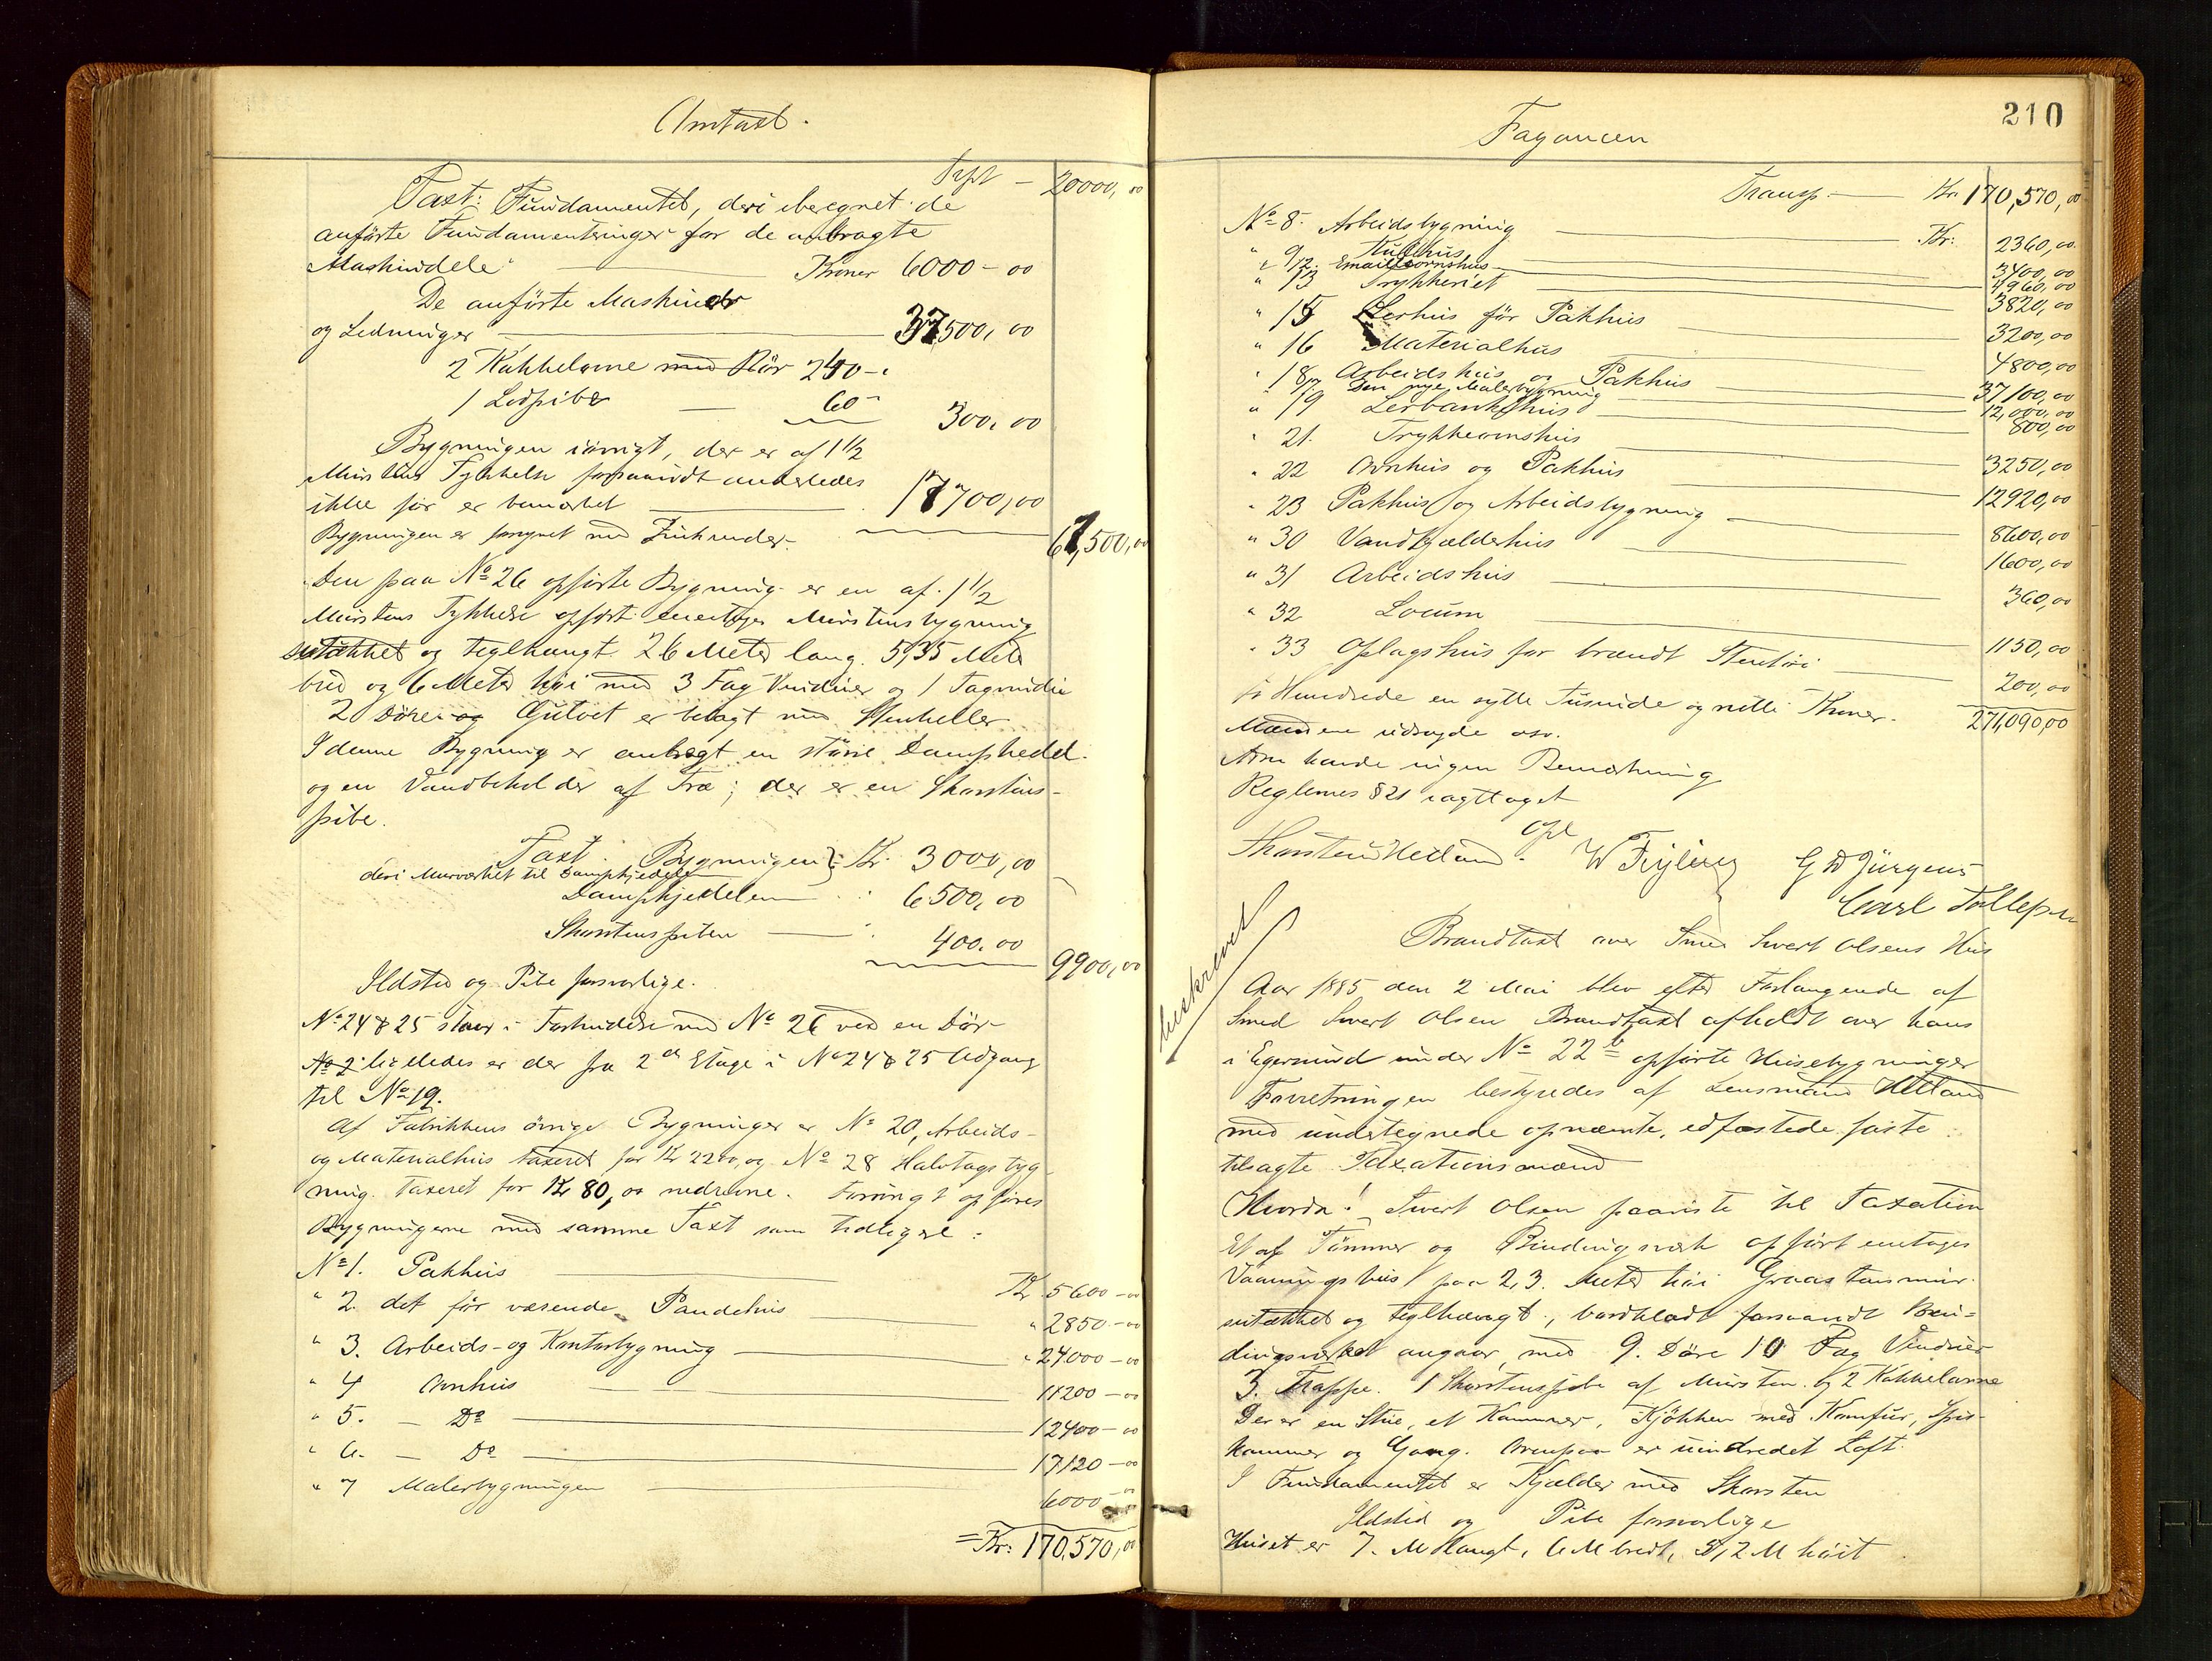 Omtaxt.
Trpt — 20000,00
Taxt: Fundamentet, deri beregnet de
anførte Fundamenteringer for de anbragte
Maskindele — Kroner 6000 - 00
De anførte Maskiner
og Ledninger — 37,500,00
2 Kakkelovne med Rør 240 -
1 Lodpibe — 60 -
300,00
Bygningen iøvrigt, der er af 1 1/2
Murstens Tykkelse forsaavidt anderledes
ikke før er bemærket — 17700,00
Bygningen er forsynet med Zinkrender.
61,500,00
Den paa No 26 opførte Bygning er en af 1 1/2
Murstens Tykkelse opført enetages Murstensbygning
sutækket og teglhængt 26 Meter lang. 5,35 Meter
bred og 6 Meter høi med 3 Fag Vinduer og 1 Tagvindu
2 Døre og Gulvet er belagt med Stenheller
I denne Bygning er anbragt en større Dampkedel
og en Vandbeholder af Træ; der er en Skorstens-
pibe.
Taxt. Bygningen Kr. 3000,00
deri Murværket til Dampkjedelen
Dampkjedelen " 6500,00
Skorstenspiben — " 400,00
9900,00
Ildsted og Pibe forsvarlige.
No 24 & 25 staar i Forbindelse med No 26 ved en Dør
No 2 ligeledes er der fra 2den Etage i No 24 & 25 Adgang
til No 19.
Af Fabrikkens øvrige Bygninger er No 20, Arbeids-
og Materialhus taxeret for Kr 2200, og No 28 Halvtagsbyg-
ning taxeret for Kr 80,00 nedrevne. Forøvrigt opføres
Bygningerne med samme Taxt som tidligere:
No 1. Pakhus — Kr 5600 - 00
" 2. det før værende Pandehus — " 2850 - 00
" 3. Arbeids- og Kontorbygning — " 24000 - 00
" 4 Ovnhus — 11200 - 00
" 5. — Do — 12400 - 00
" 6. — Do — 17120 - 00
" 7 Malerbygningen — 6000 - 00
= Kr: 170,570,00
210
Fayancen
Transp. — Kr 170,570,00
No 8. Arbeidsbygning — Kr: 2360,00
" 9 Kulhus — 3400,00
" 12. Emailleovnshus — 4960,00
" 13 Trykkeriet — 3820,00
" 15 Lerhus før Pakhus — 3200,00
" 16 Materialhus — 4800,00
" 18 Arbeidshus og Pakhus — 37100,00
" 17 Den nye Malerbygning — 12,000,00
" 19 Lerbankehus — 800,00
" 21. Trykkeovnshus — 3250,00
" 22 Ovnhus og Pakhus — 12920,00
" 23 Pakhus og Arbeidsbygning — 8600,00
" 30 Vandkjælderhus — 1600,00
" 31 Arbeidshus — 360,00
" 32 Locum — 1150,00
" 33 Oplagshus for brændt Stentøi — 200,00
to Hundrede en sytti Tusinde og nitti Kroner.
271,090,00
Mændene udsagde osv.
Arne havde ingen Bemærkning
Reglemes § 21 iagttaget
Opl
Thorsten Hetland. W Feyling G W Jürgens
Carl Tollefsen
beskrevet
Brandtaxt over Smed Sivert Olsens Hus
Aar 1885 den 2 Mai blev efter Forlangende af
Smed Sivert Olsen Brandtaxt afholdt over hans
i Egersund under No 22b opførte Husebygninger
Forretningen bestyredes af Lensmand Hetland
med undertegnede opnævnte, edfæstede faste
tilsagte Taxationsmænd
Hvorda! Sivert Olsen paaviste til Taxation
Et af Tømmer og Bindingsværk opført enetages
Vaaningshus paa 2,3. Meter høi Graastensmur
sutækket og teglhængt, bordklædt forsaavidt Bin-
dingsværket angaar, med 9. Døre 10 Fag Vinduer
3. Trappe. 1 Skorstenspibe af Mursten og 2 Kakkelovne
Der er en Stue, et Kammer, Kjøkken med Komfur, Spis-
kammer og Gang. Ovenpaa er uindredet Loft.
I Fundamentet er Kjælder med Skorsten
Ildsted og Pibe forsvarlige
Huset er 7. M langt, 6 M bredt, 3,2 M høit